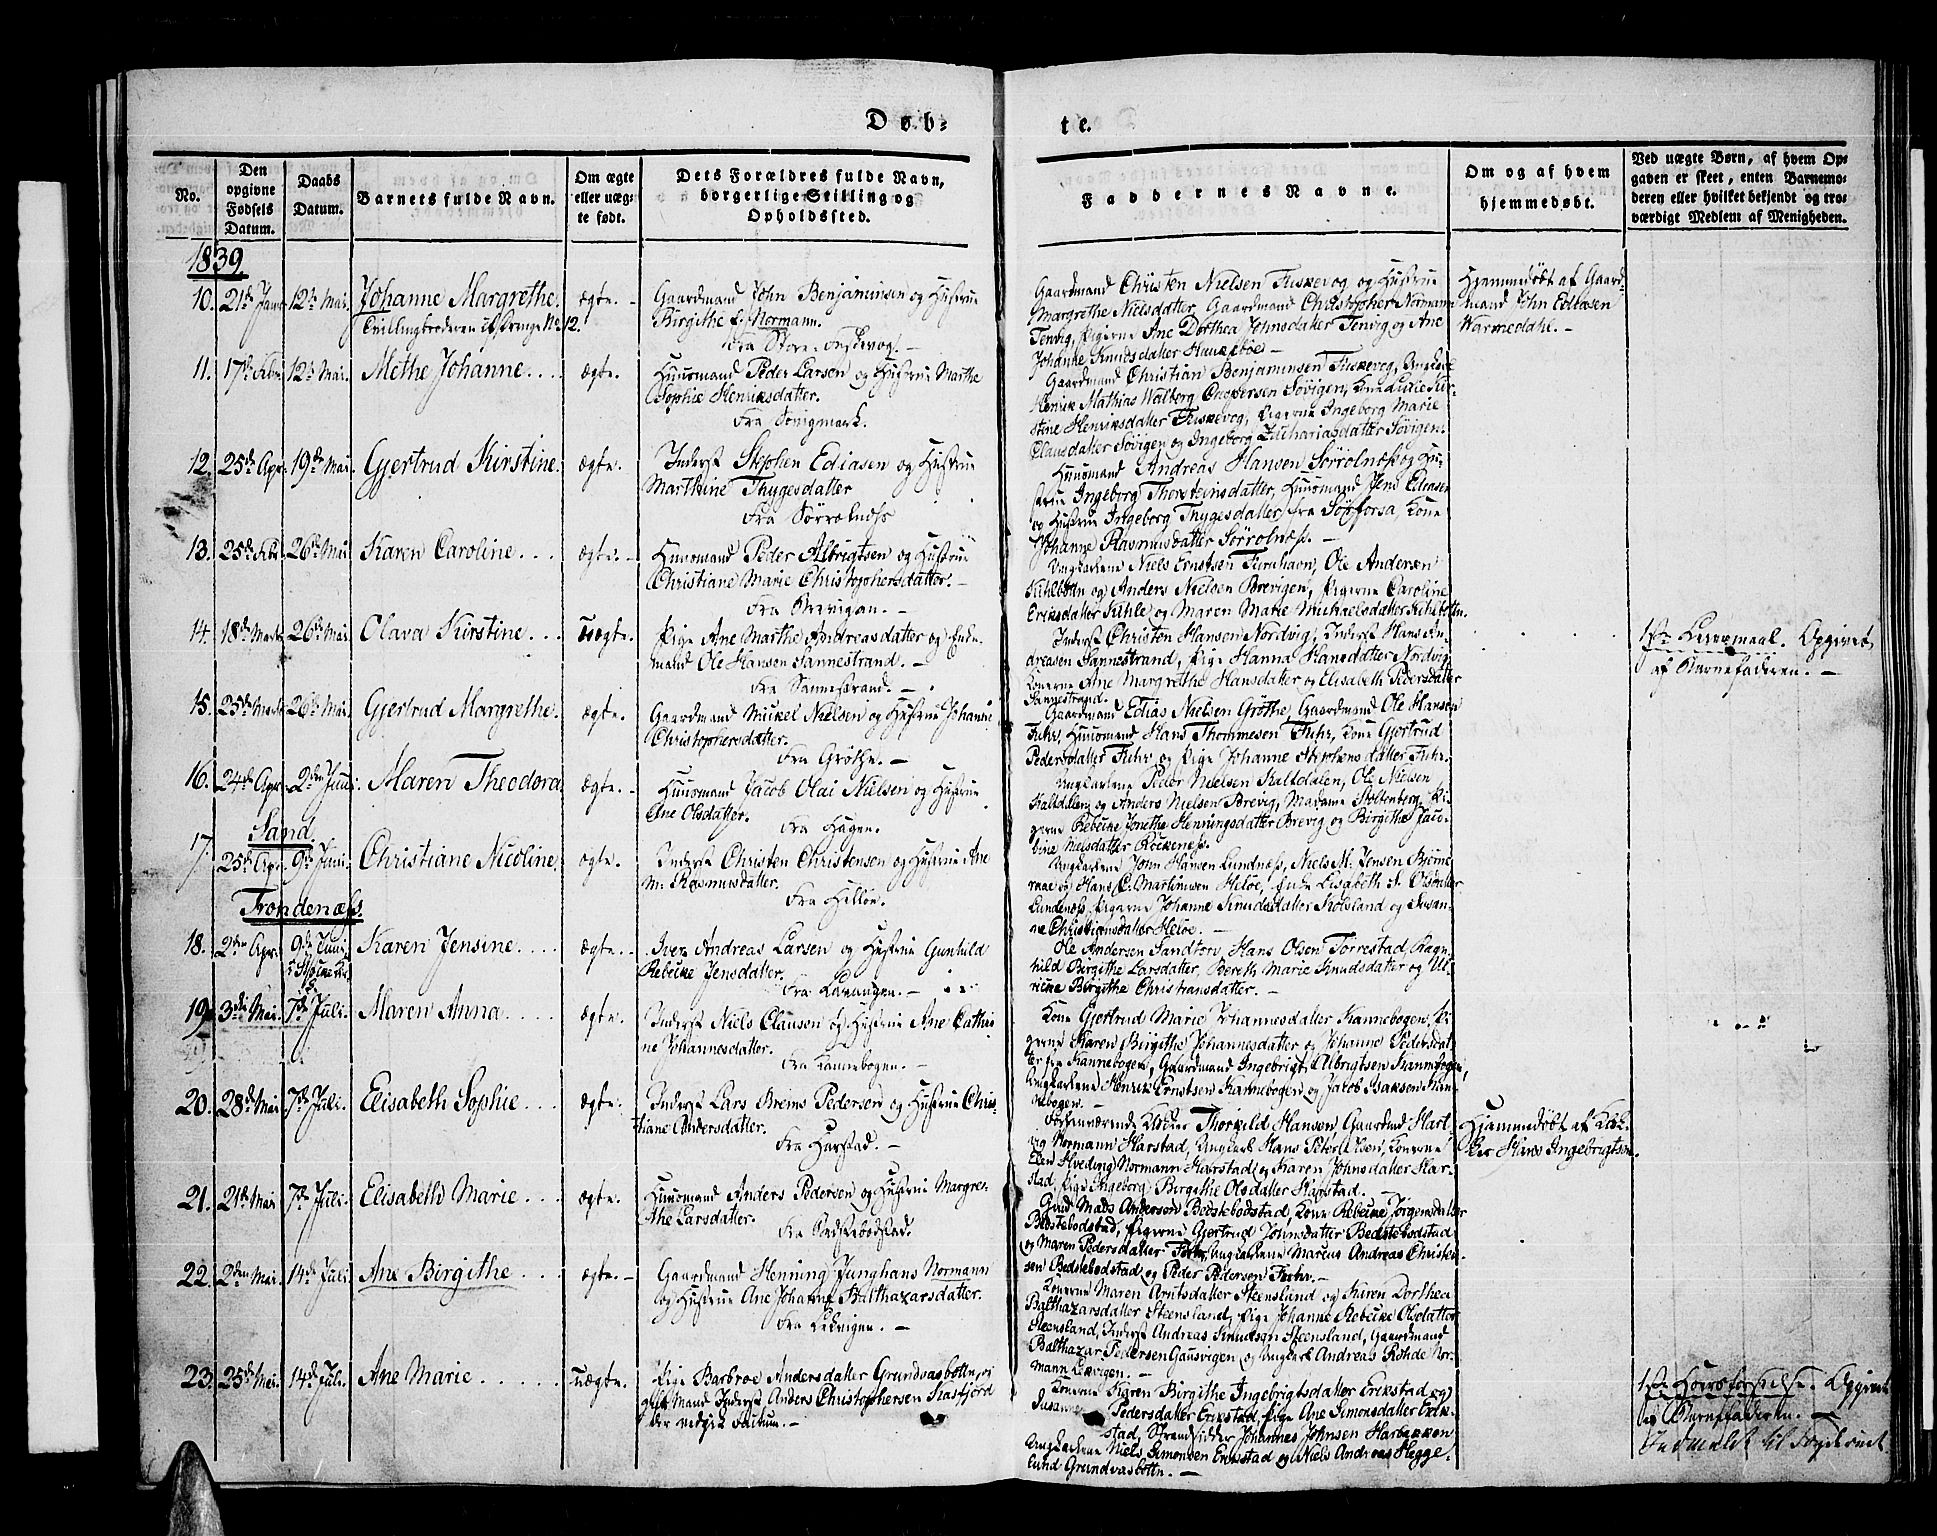 Døb-
te.
No.
Den opgivne Fødsels Datum.
Daabs Datum.
Barnets fulde Navn.
Om ægte eller uæg-te født.
Dets Forældres fulde Navn, borgerlige Stilling og Opholdssted.
Faddernes Navne.
Om og af hvem hjemmedøbt.
Ved uægte Børn, af hvem Op-
gaven er skeet, enten Barnemo-
deren eller hvilket bekjendt og tro-
værdigt Medlem af Menigheden.
1839
10. 21de Janr 12te Mai. Johanne Margrethe. ægte. Gaardmand John Benjaminsen og Hustrue
Tvillingbroderen No. 12. Birgithe f. Normann.
Fra Store Fuskevog.
Gaardmand Christen Nielsen Fuskevog og Hustrue
Margrethe Nielsdatter, Gaardmand Christopher Normann
Tenvig, Pigerne Ane Dorthea Johnsdatter Tenvig og Ane
Johanne Knudsdatter Haukebøe
Hjemmedöbt af Gaard-
mand John Ediasen
Warmedahl.
11. 17de Febr. 12te Mai. Methe Johanne ægte. Huusmand Peder Larsen og Hustrue Marthe
Sophie Henriksdatter.
Fra Sövigmark.
Gaardmand Christian Benjaminsen Fuskevog, Ungkarl
Henrik Mathias Walberg Caspersen Sövigen, Kone Lukie Kir-
stene Henriksdatter Fuskevog, Pigerne Ingeborg Marie
Clausdatter Sövigen og Ingeborg Zachariasdatter Sövigen.
12. 25de Apr. 19de Mai. Gjertrud Kirstine. ægte. Inderst Stephen Ediasen og Hustrue
Marthine Thygesdatter
Fra Sörrolnæss
Huusmand Andreas Hansen Sörrolnæss og Hu-
strue Ingeborg Thorsteinsdatter, Huusmand Jens Ediasen
og Hustrue Ingeborg Thygesdatter fra Sörforsa, Kone
Johanne Rasmusdatter Sörrolnæss.
13. 25de Febr. 26de Mai. Karen Caroline ægte. Huusmand Peder Albrigtsen og Hustrue
Christiane Marie Christophersdatter.
Fra Brevigen.
Ungkarlene Niels Ernstsen Furuhavn, Ole Andersen
Kihlbotn og Anders Nielsen Brevigen, Pigerne Caroline
Eriksdatter Kihle og Maren Marie Michaelsdatter Kihlbotn.
14. 18de Marts 26de Mai. Olava Kirstine Uægte. Pige Ane Marthe Andreasdatter og Enke-
mand Ole Hansen Sannestrand.
Fra Sannestrand.
Inderst Christen Hansen Nordvig, Inderst Hans An-
dreasen Sannestrand, Pige Hanna Hansdatter Nordvig
Konerne Ane Margrethe Hansdatter og Elisabeth Pedersdatter
Sannestrand.
1ste Leiermaal. Opgivet
af Barnefaderen.
15. 25de Marts 26de Mai. Gjertrud Margrethe. ægte. Gaardmand Mickel Nielsen og Hustrue Johanne
Christophersdatter.
Fra Gröthe.
Gaardmand Edias Nielsen Gröthe, Gaardmand Ole Hansen
Fuhr, Huusmand Hans Thommesen Fuhr, Kone Gjertrud
Pedersdatter Fuhr og Pige Johanne Stephensdatter Fuhr.
16. 24de Apr. 2den Juni. Maren Theodora ægte. Huusmand Jacob Olai Nielsen og Hustrue
Ane Olsdatter.
Fra Hagen.
Ungkarlene Peder Nielsen Kaltdalen, Ole Nielsen
Kaltdalen og Anders Nielsen Brevig, Madame Stoltenberg, Pi-
gerne Rebekke Jonetha Henningsdatter Brevig og Birgithe Jaco-
bine Nielsdatter Röckenæss.
Sand
17. 25de Apr. 9de Juni. Christiane Nicoline. ægte. Inderst Christen Christensen og Hustrue Ane
M. Rasmusdatter.
Fra Hilløe.
Ungkarlene John Hansen Lundnæss, Niels M. Jensen Bjerne-
raae og Hans C. Martinusen Heløe, Enke Lisabeth S. Olsdatter
Lundenæss, Pigerne Johanne Knudsdatter Kolsland og Susan-
ne Christiansdatter Heløe.
Trondenæss.
18. 2den Apr. 9de Juni Karen Jensine ægte. Iver Andreas Larsen og Hustrue Gunhild
Rebekke Jensdatter.
Fra Lavangen.
Ole Andersen Sandtorv, Hans Olsen Torrestad, Ragn-
hild Birgithe Larsdatter, Bereth Marie Knudsdatter og Ul-
rikke Birgithe Christiansdatter.
19. 3die Mai. 7de Juli. Maren Anna ægte. Inderst Niels Clausen og Hustrue Ane Cathri-
ne Johannesdatter.
Fra Kannebogen.
Kone Gjertrud Marie Johannesdatter Kannebogen, Pi-
gerne Karen Birgithe Johannesdatter og Johanne Pedersdat-
ter fra Kannebogen, Gaardmand Ingebrigt Albrigtsen Kannebogen,
Ungkarlene Henrik Ernstsen Kannebogen og Jacob Isaksen Kan-
nebogen.
20. 28de Mai 7de Juli. Elisabeth Sophie ægte. Inderst Lars Brems Pedersen og Hustrue Chris-
tiane Andersdatter.
Fra Harstad.
Forhenværende Klokker Thorkild Hansen, Gaardmd Hart-
vig Normann Harstad, Ungkarl Hans Peter Olsen, Konerne
Elen Hveding Normann Harstad og Karen Johnsdatter Har-
stad, Pige Ingeborg Birgithe Olsdatter Harstad.
Hjemmedöbt af Klok-
ker Hans Ingebrigtsen.
21. 21de Mai 7de Juli. Elisabeth Marie ægte. Huusmand Anders Pedersen og Hustrue Margre-
the Larsdatter.
Fra Bedstebodstad.
Gmd Mads Andersen Bedstebodstad, Kone Rebekke Jörgensdatter
Bedstebodstad, Pigerne Gjertrud Johnsdatter Bedstebodstad
og Maren Pedersdatter Fuhr, Ungkarlene Marcus Andreas Christen-
sen Bedstebodstad og Peder Pedersen Fuhr.
22. 2den Mai. 14de Juli. Ane Birgithe ægte. Gaardmand Henning Junghans Normann
og Hustrue Ane Johanna Balthazarsdatter.
Fra Ledvigen.
Konerne Maren Arntsdatter Steensland og Karen Dorthea
Balthazarsdatter Steensland, Pige Johanne Rebekke Olsdatter
Steensland, Inderst Andreas Knudsen Steensland, Gaardmand
Balthazar Pedersen Gausvigen og Ungkarl Andreas Rohde Nor-
mann Ledvigen.
23. 25de Mai. 14de Juli. Ane Marie uægte. Pige Barbroe Andersdatter Grundvasbotten, og
gift Mand Inderst Anders Christophersen Kasfjord
Konerne Karen Birgithe Ingebrigtsdatter Erikstad og
Susanne Pedersdatter Erikstad, Pige Ane Simonsdatter Erik-
stad, Strandsidder Johannes Johnsen Harbakken
Ungkarlene Niels Simonsen Erikstad og Niels Andreas Hegge-
lund Grundvasbotten.
1ste Hoersforseelse. Opgivet
af Barnefaderen.
Indmeldt til Fogderiet